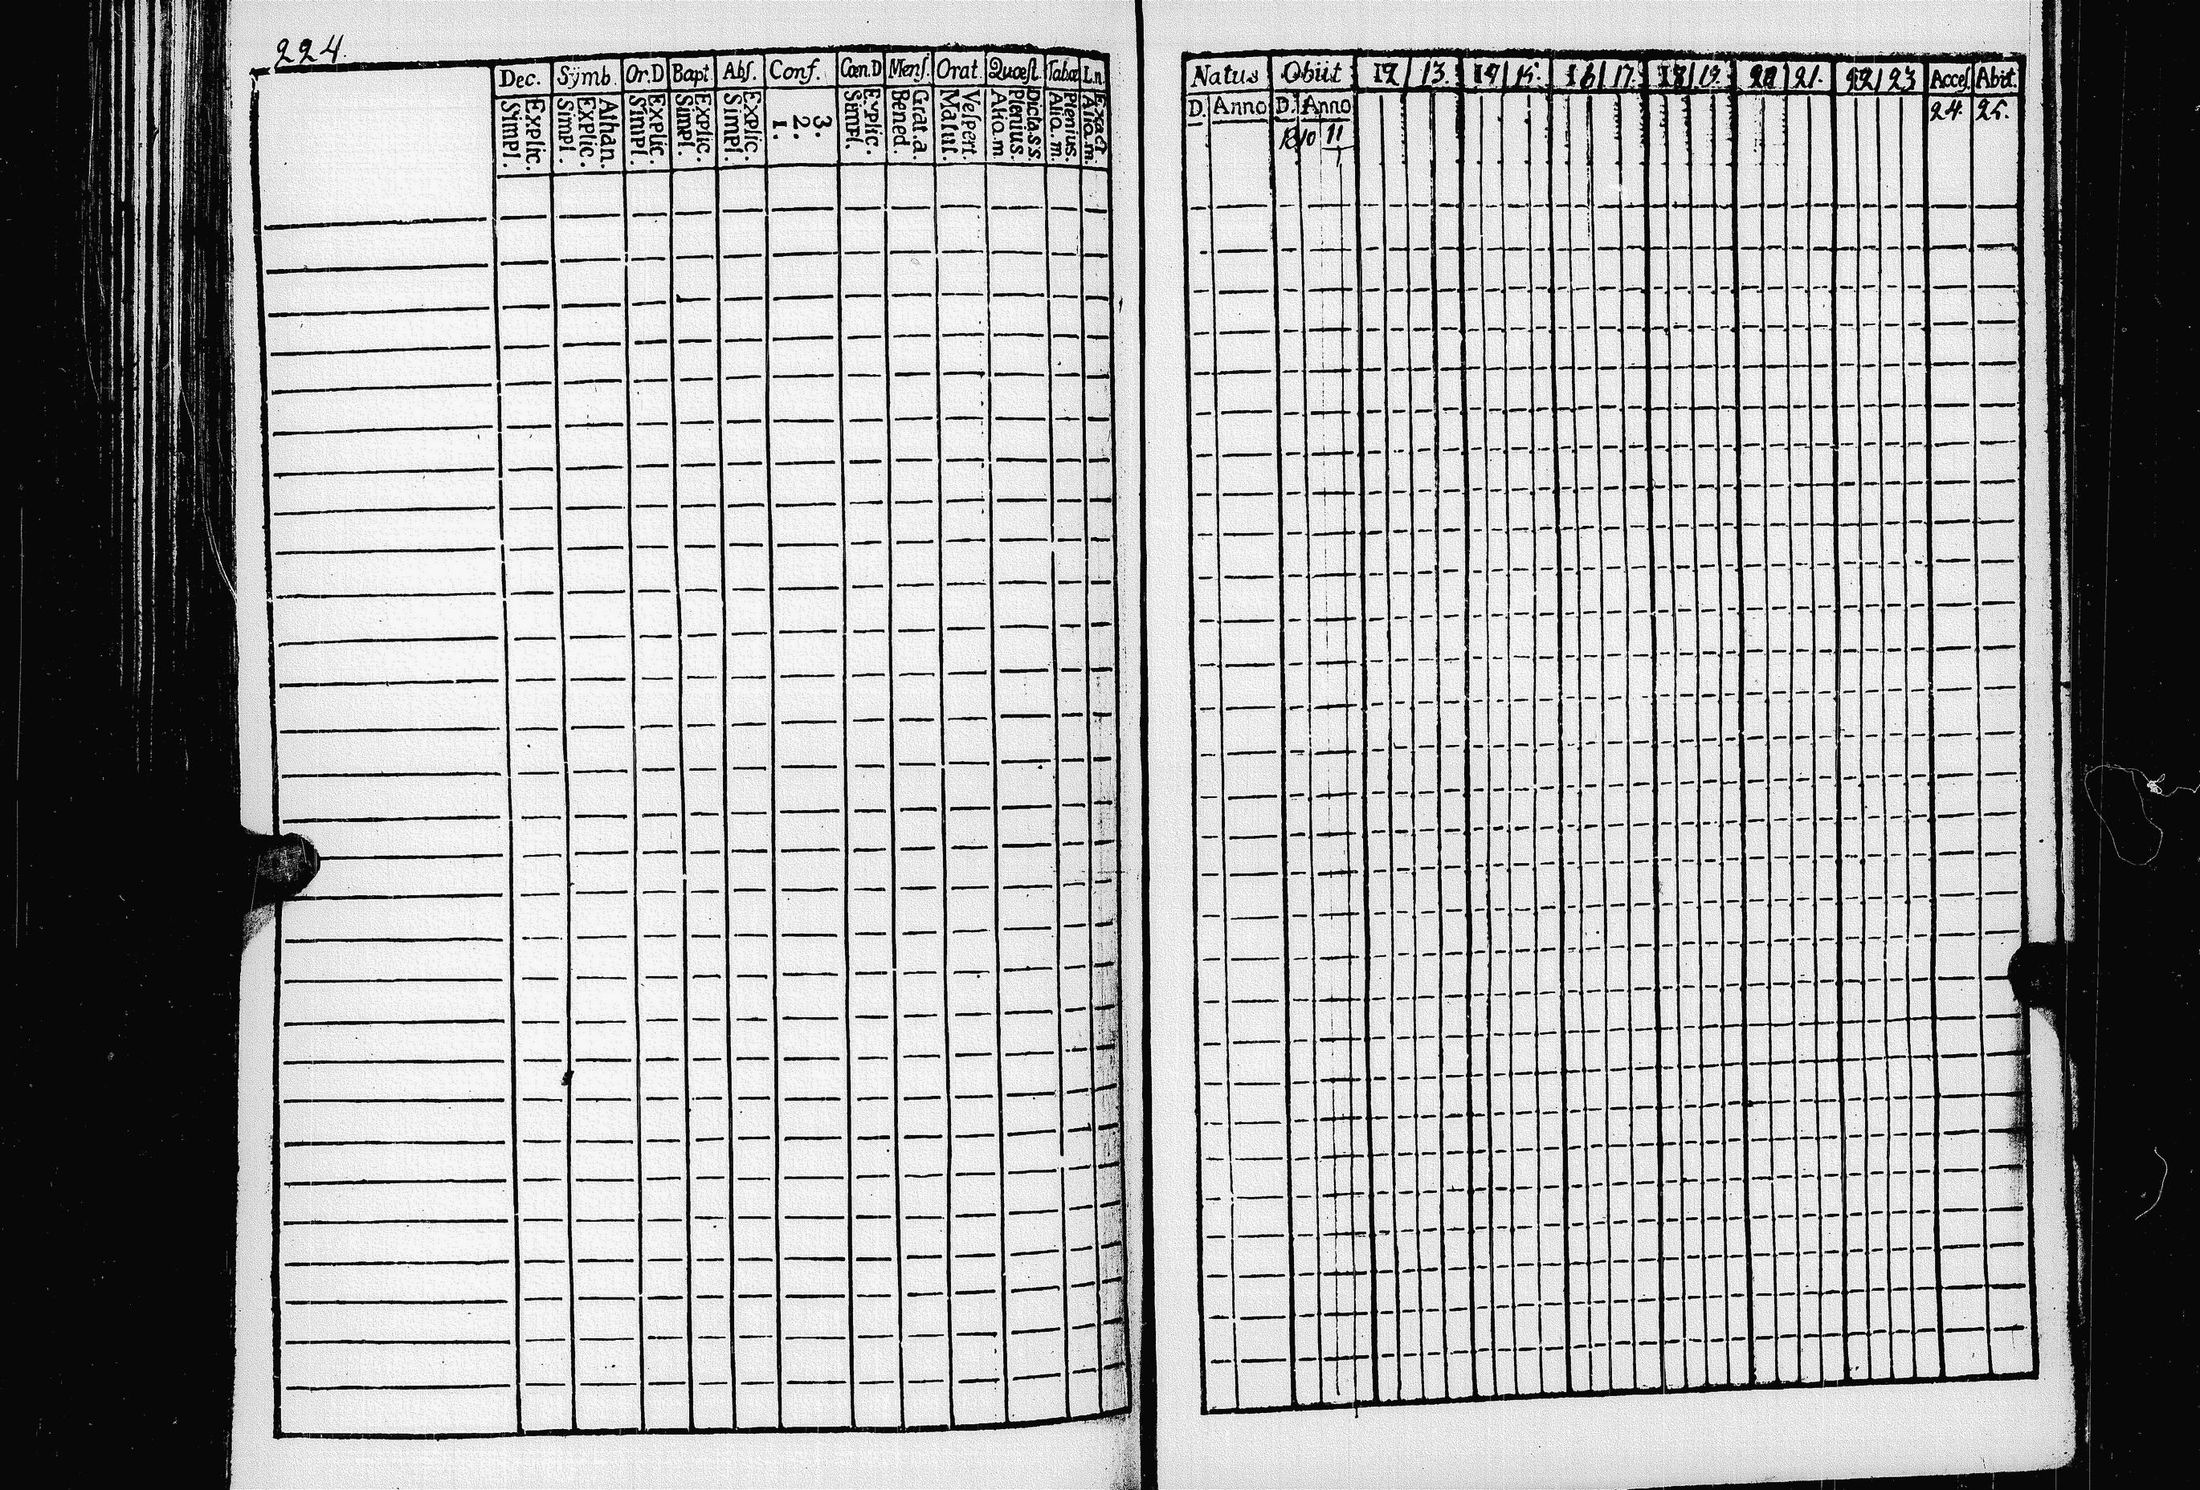 224.
Dec. Sÿmb. Or.D Bapt. Abſ. Conſ. Cœn.D Menſ. Orat. Quœſt. Tabœ L.n.
Explic. Simpl. Athan. Explic. Simpl. Explic. Simpl. Explic. Simpl. Explic. Simpl. 3. 2. 1. Explic. Simpl. Grat.a. Bened. Veſpert. Matut. Dicta.s.s. Plenius. Alia.m. Plenius. Alia.m. Exact Alia.m.
Natus Obiit 12 13. 14 15. 16 17. 18 19. 20 21. 22 23 Acceſ. Abiit.
D. Anno D. Anno 24. 25.
1810 11